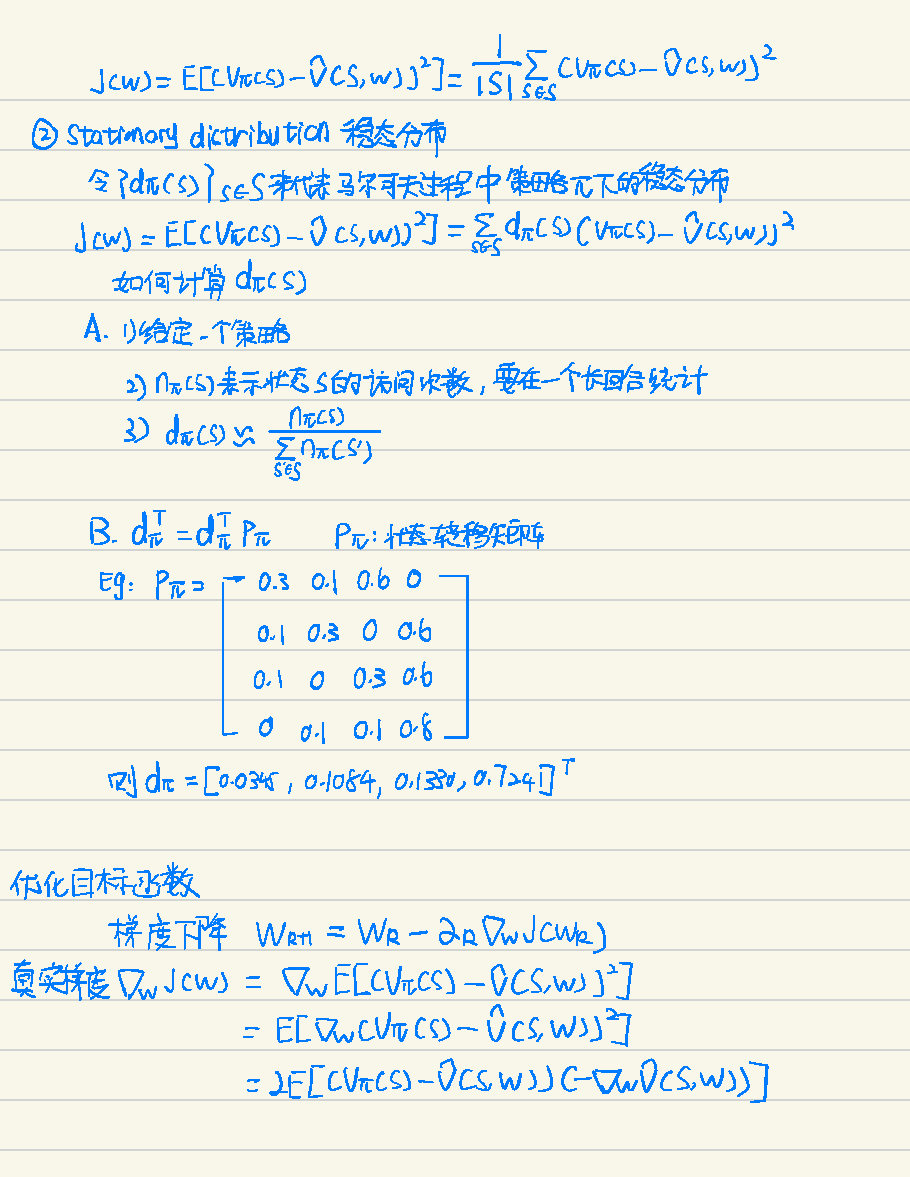 J(w) = E[(Vπ(S) - V̂(S,w))²] = 1/|S| Σ_{S∈S} (Vπ(S) - V̂(S,w))²
② Stationary distribution 稳态分布
令{dπ(S)}_{S∈S}来代表马尔可夫过程中策略π下的稳态分布
J(w) = E[(Vπ(S) - V̂(S,w))²] = Σ_{S∈S} dπ(S)(Vπ(S) - V̂(S,w))²
如何计算 dπ(S)
A. 1)给定一个策略
2) nπ(S)表示状态S的访问次数, 要在一个长回合统计
3) dπ(S) ≈ nπ(S) / Σ_{S'∈S} nπ(S')
B. dπ^T = dπ^T Pπ Pπ: 状态转移矩阵
Eg: Pπ = [ 0.3 0.1 0.6 0
0.1 0.3 0 0.6
0.1 0 0.3 0.6
0 0.1 0.1 0.8 ]
则 dπ = [0.0345, 0.1084, 0.1330, 0.7241]^T
优化目标函数
梯度下降 W_{k+1} = W_k - α_k ∇_w J(W_k)
真实梯度 ∇_w J(w) = ∇_w E[(Vπ(S) - V̂(S,w))²]
= E[∇_w (Vπ(S) - V̂(S,w))²]
= 2E[(Vπ(S) - V̂(S,w))(-∇_w V̂(S,w))]